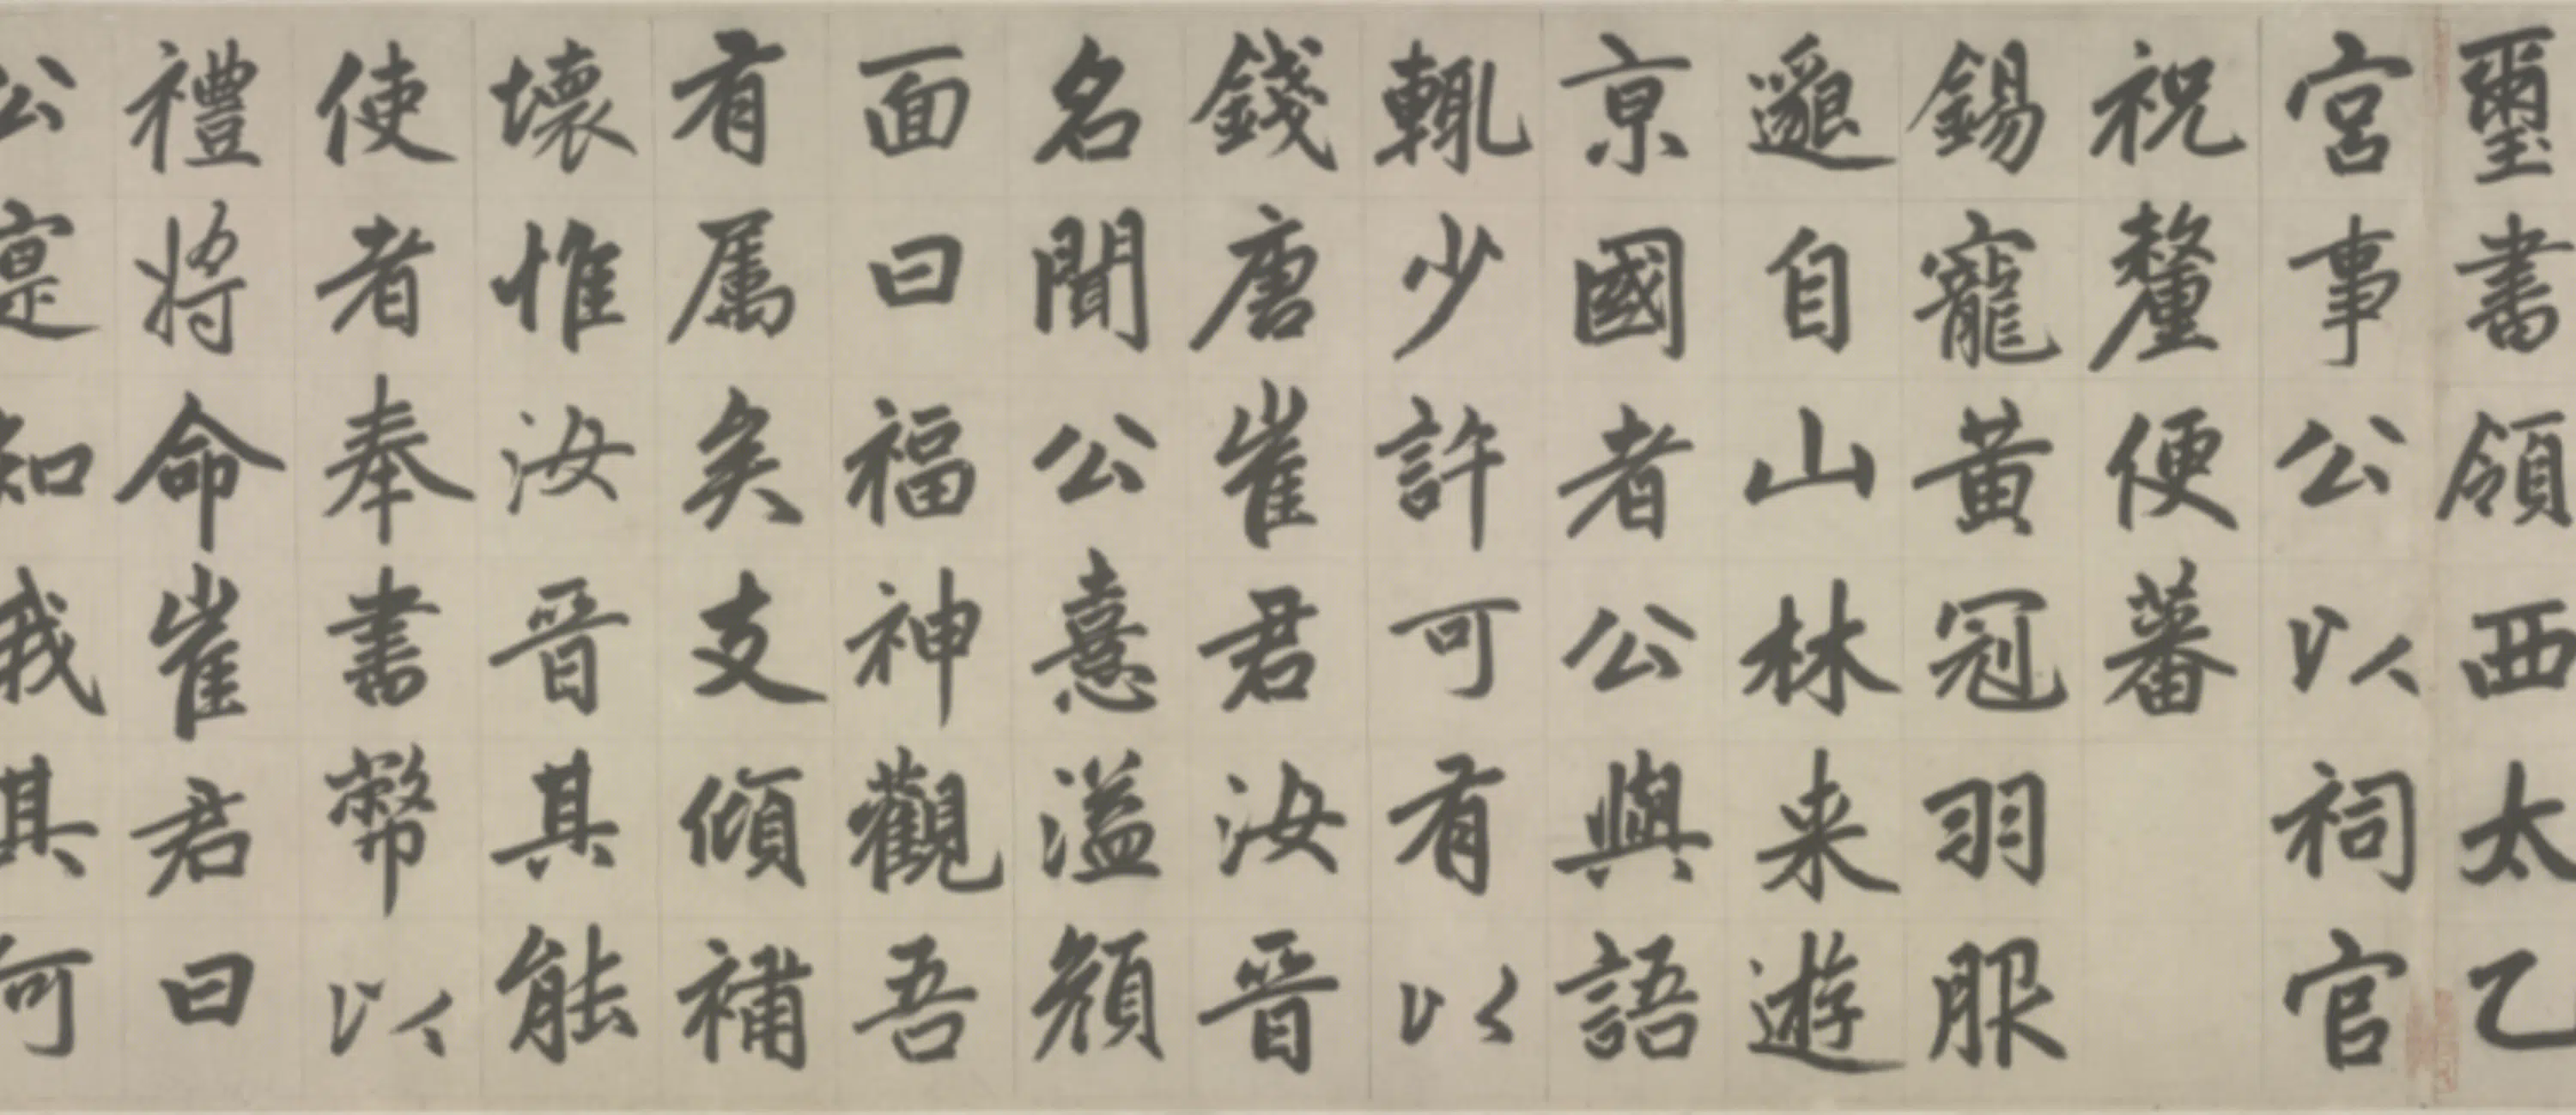 璽書領西太乙
宮事公以祠官
祝釐便蕃
錫寵黃冠羽服
邈自山林来遊
京國者公與語
輒少許可有以
錢唐崔君汝晋
名聞公憙溢顏
面曰福神觀吾
有属矣支傾補
壊惟汝晋其能
使者奉書幣以
禮將命崔君曰
公寔知我其可